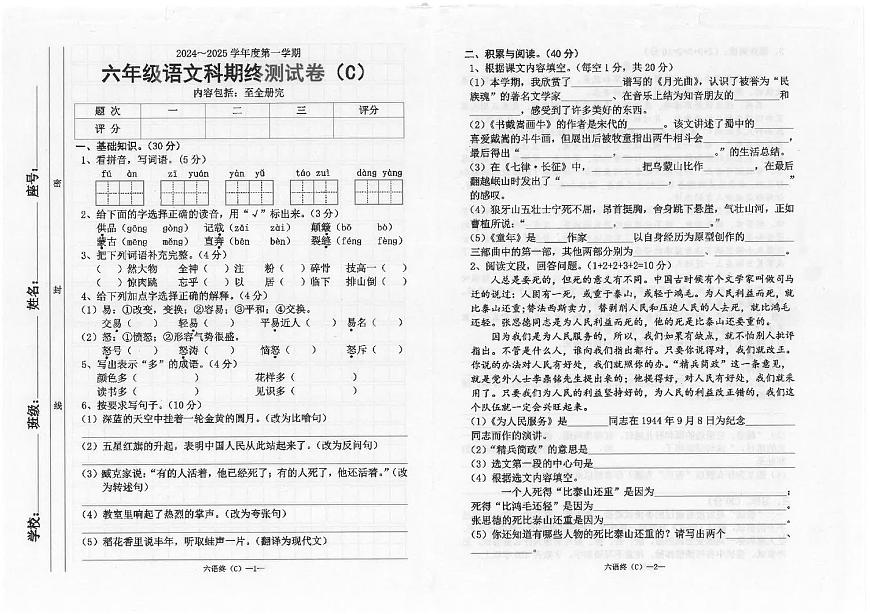 2024～2025 学年度第一学期
六年级语文科期终测试卷（C）
内容包括：至全册完
题 次 一 二 三 评分
评 分
一、基础知识。（30 分）
1、看拼音，写词语。（5 分）
fú àn zī yuán yàn yǔ táo zuì dàng yàng
2、给下面的字选择正确的读音，用“√”标出来。（3 分）
供品（gōng gòng） 记载（zǎi zài） 颠簸（bǒ bò）
蒙古（měng měng） 直奔（bēn bèn） 裂缝（féng fèng）
3、把下列词语补充完整。（4 分）
（ ）然大物 全神（ ）注 粉（ ）碎骨 技高一（ ）
（ ）惊肉跳 忘乎（ ）以 居（ ）临下 排山倒（ ）
4、给下列加点字选择正确的解释。（4 分）
（1）易：①改变，变换；②容易；③平和；④交换。
交易（ ） 轻易（ ） 平易近人（ ） 易名（ ）
（2）怒：①愤怒；②形容气势很盛。
怒号（ ） 怒涛（ ） 恼怒（ ） 怒斥（ ）
5、写出表示“多”的成语。（4 分）
颜色多（ ） 花样多（ ）
读书多（ ） 见识多（ ）
6、按要求写句子。（10 分）
（1）深蓝的天空中挂着一轮金黄的圆月。（改为比喻句）
（2）五星红旗的升起，表明中国人民从此站起来了。（改为反问句）
（3）臧克家说：“有的人活着，他已经死了；有的人死了，他还活着。”（改
为转述句）
（4）教室里响起了热烈的掌声。（改为夸张句）
（5）稻花香里说丰年，听取蛙声一片。（翻译为现代文）
六语终（C）—1—
学校： 班级： 姓名： 座号：
密 封 线
二、积累与阅读。（40 分）
1、根据课文内容填空。（每空 1 分，共 20 分）
（1）本学期，我欣赏了 谱写的《月光曲》，认识了被誉为“民
族魂”的著名文学家 、在音乐上结为知音朋友的 和
，感受到了许多美好的东西。
（2）《书戴嵩画牛》的作者是宋代的 。该文讲述了蜀中的
喜爱戴嵩的斗牛画，但展出后被牧童指出两牛相斗会 ，
最后得出“ ， 。”的生活总结。
（3）在《七律·长征》中， 把乌蒙山比作 ，在最后
翻越岷山时发出了“ ， ”
的感叹。
（4）狼牙山五壮士宁死不屈，昂首挺胸，舍身跳下悬崖，气壮山河，正如
曹植所说：“ ， 。”
（5）《童年》是 作家 以自身经历为原型创作的
三部曲中的第一部，其他两部分别为 、 。
2、阅读文段，回答问题。（1+2+2+3+2=10 分）
人总是要死的，但死的意义有不同。中国古时候有个文学家叫做司马
迁的说过：人固有一死，或重于泰山，或轻于鸿毛。为人民利益而死，就
比泰山还重；替法西斯卖力，替剥削人民和压迫人民的人去死，就比鸿毛
还轻。张思德同志是为人民利益而死的，他的死是比泰山还要重的。
因为我们是为人民服务的，所以，我们如果有缺点，就不怕别人批评
指出。不管是什么人，谁向我们指出都行。只要你说得对，我们就改正。
你说的办法对人民有好处，我们就照你的办。“精兵简政”这一条意见，
就是党外人士李鼎铭先生提出来的；他提得好，对人民有好处，我们就采
用了。只要我们为人民的利益坚持好的，为人民的利益改正错的，我们这
个队伍就一定会兴旺起来。
（1）《为人民服务》是 同志在 1944 年 9 月 8 日为纪念
同志而作的演讲。
（2）“精兵简政”的意思是 。
（3）选文第一段的中心句是 。
（4）根据选文内容填空。
一个人死得“比泰山还重”是因为 ；
死得“比鸿毛还轻”是因为 。
张思德的死比泰山还重是因为 。
（5）你还知道有哪些人物的死比泰山还重的？请写出两个 、
。
六语终（C）—2—